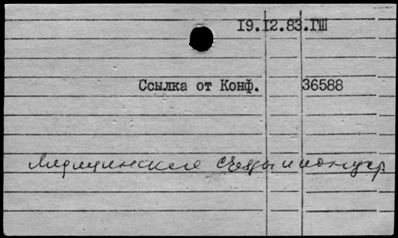 19.12.83.ГШ
Ссылка от Конф. 36588
Медицинские съезды и конфер